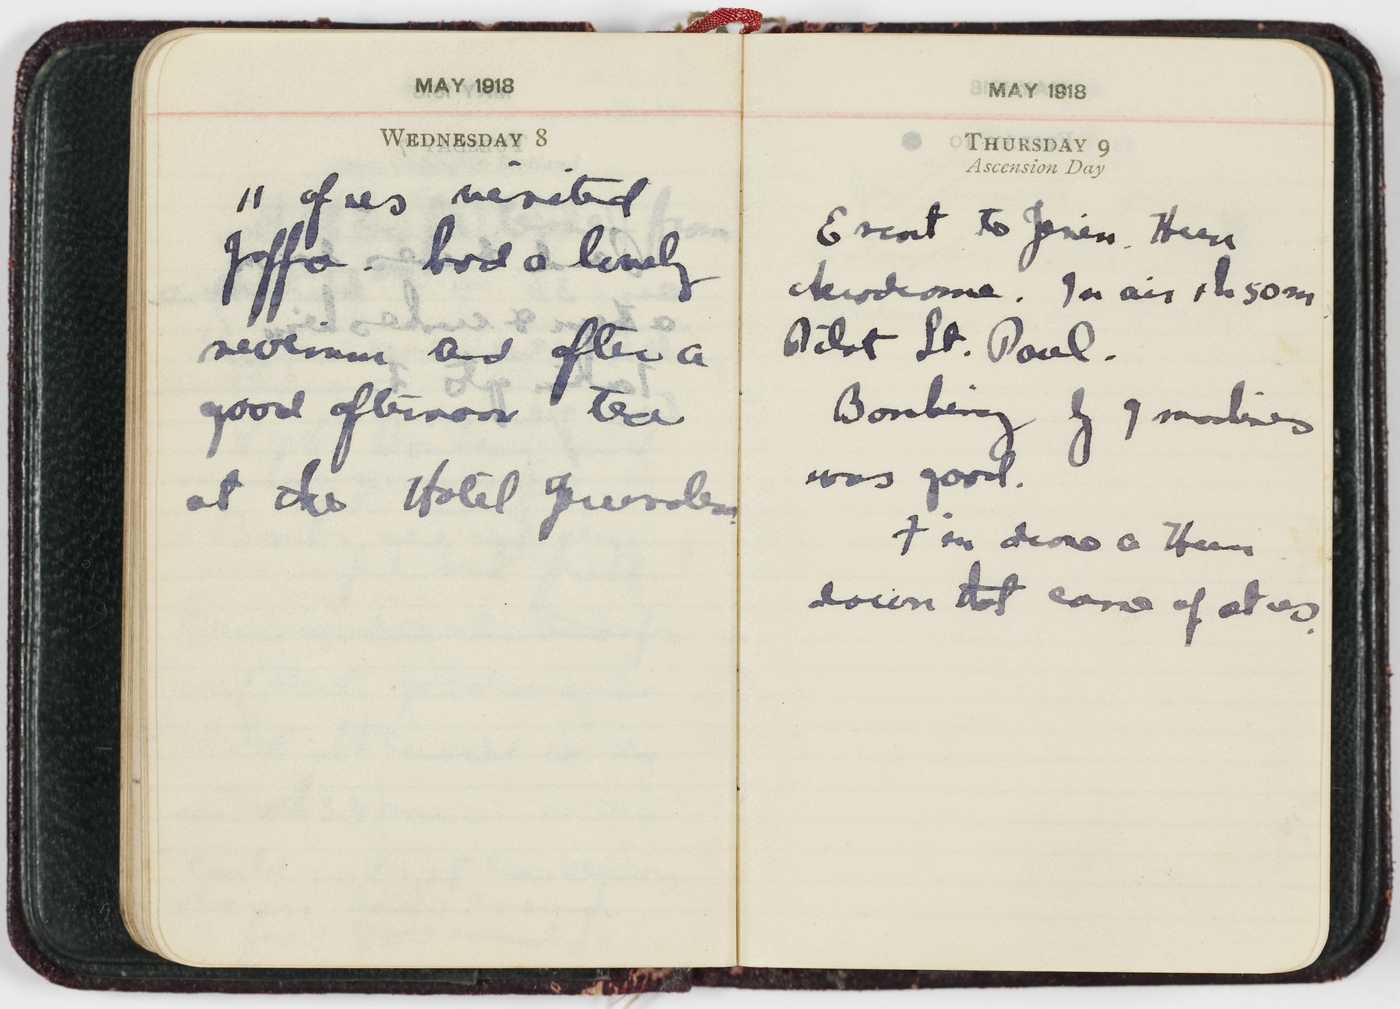 MAY 1918
WEDNESDAY 8
11 of us visited
Jaffa. had a lovely
and after a
good afternoon tea
at the Hotel Jerusalem
MAY 1918
THURSDAY 9
Ascension Day
Escort to Jenin. Hun
Aerodrome. In air 1h 50m
Pilot Lt. Paul.
Bombing by 9 machines
was good.
in drove a Hun
down that came up at us.